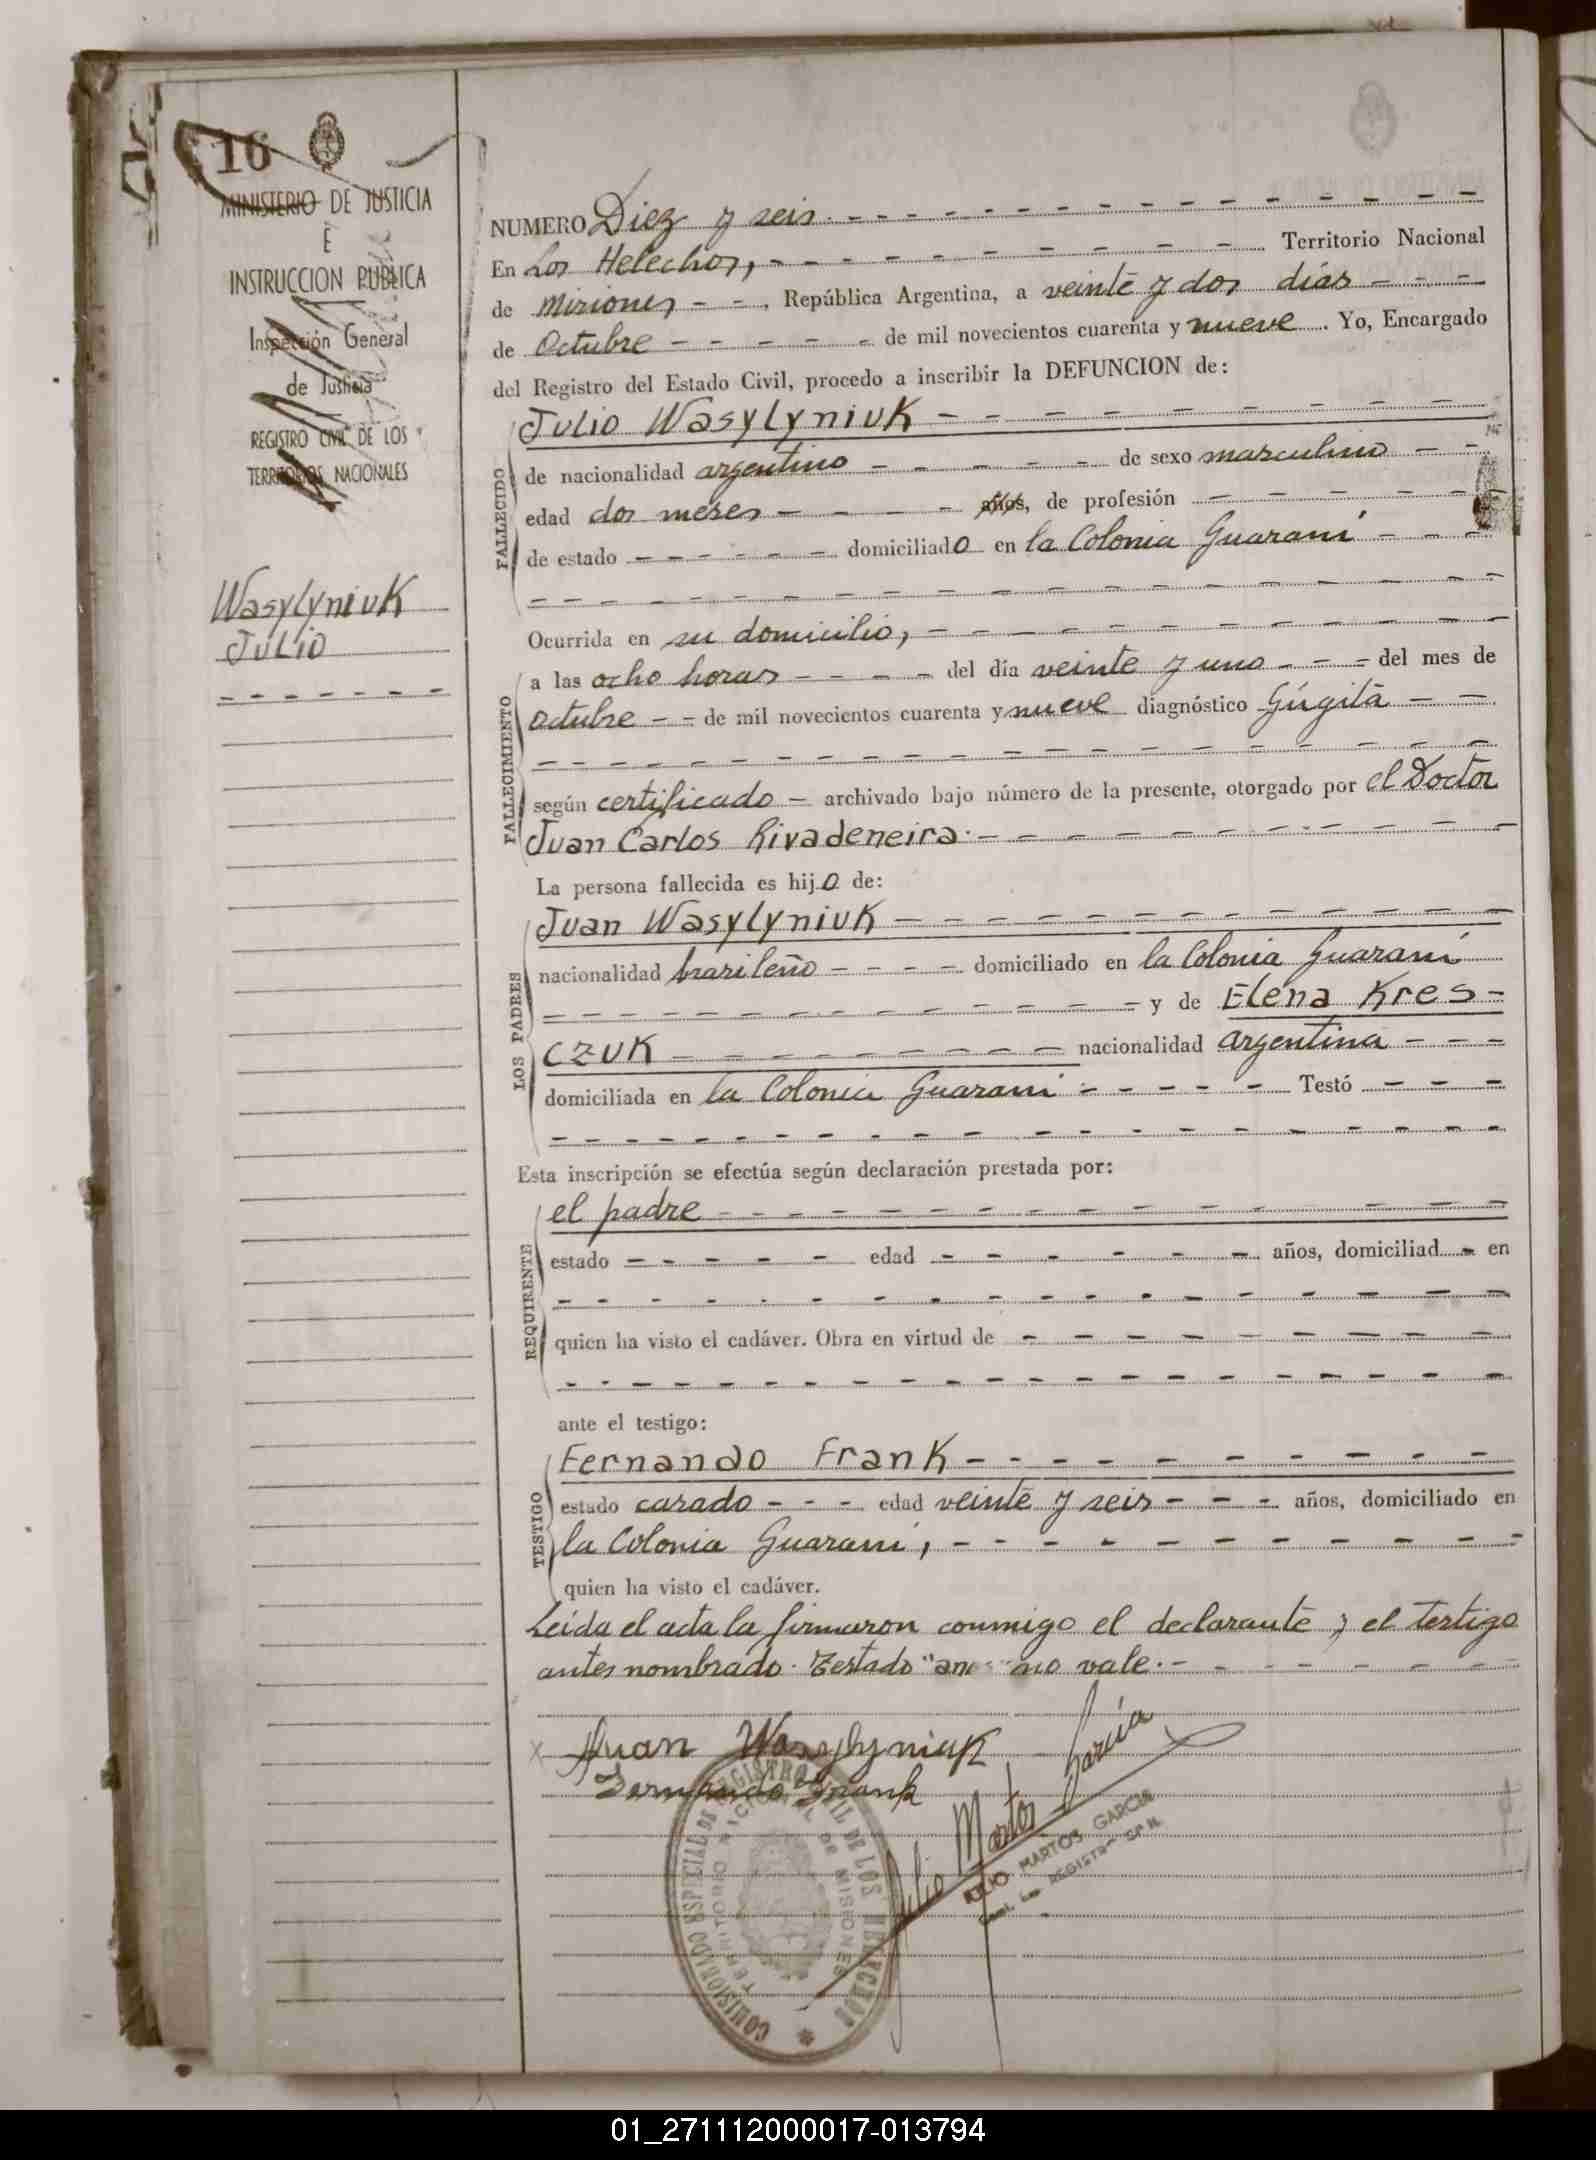 16
MINISTERIO DE JUSTICIA
E
INSTRUCCION PUBLICA
Inspección General
de Justicia
REGISTRO CIVIL DE LOS
TERRITORIOS NACIONALES
Wasylyniuk
Julio
NUMERO Diez y seis. - - -
En Los Helechos, - - - Territorio Nacional
de Misiones - - , República Argentina, a veinte y dos días - - -
de Octubre - - - de mil novecientos cuarenta y nueve . Yo, Encargado
del Registro del Estado Civil, procedo a inscribir la DEFUNCION de:
FALLECIDO
Julio Wasylyniuk - - -
de nacionalidad argentino - - - de sexo masculino - -
edad dos meses - - - años, de profesión - - -
de estado - - - domiciliado en la Colonia Guaraní - - -
Ocurrida en su domicilio, - - -
FALLECIMIENTO
a las ocho horas - - - del día veinte y uno - - - del mes de
Octubre - - de mil novecientos cuarenta y nueve diagnóstico - -
según certificado - archivado bajo número de la presente, otorgado por el Doctor
Juan Carlos Rivadeneira. - - -
La persona fallecida es hijo de:
LOS PADRES
Juan Wasylyniuk - - -
nacionalidad brasileño - - - domiciliado en la Colonia Guaraní
- - - y de Elena Kres-
czuk - - - nacionalidad argentina - - -
domiciliada en la Colonia Guaraní - - - Testó - - -
Esta inscripción se efectúa según declaración prestada por:
REQUIRENTE
el padre - - -
estado - - - edad - - - años, domiciliad - en
quien ha visto el cadáver. Obra en virtud de - - -
ante el testigo:
TESTIGO
Fernando Frank - - -
estado casado - - - edad veinte y seis - - - años, domiciliado en
la Colonia Guaraní, - - -
quien ha visto el cadáver.
Leída el acta la firmaron conmigo el declarante y el testigo
antes nombrado. Testado "años" no vale. - - -
Juan Wasylyniuk
Fernando Frank
Julio Martos García
JULIO MARTOS GARCIA
COMISIONADO ESPECIAL DE REGISTRO CIVIL DE LOS HELECHOS
TERRITORIO NACIONAL DE MISIONES
01_271112000017-013794